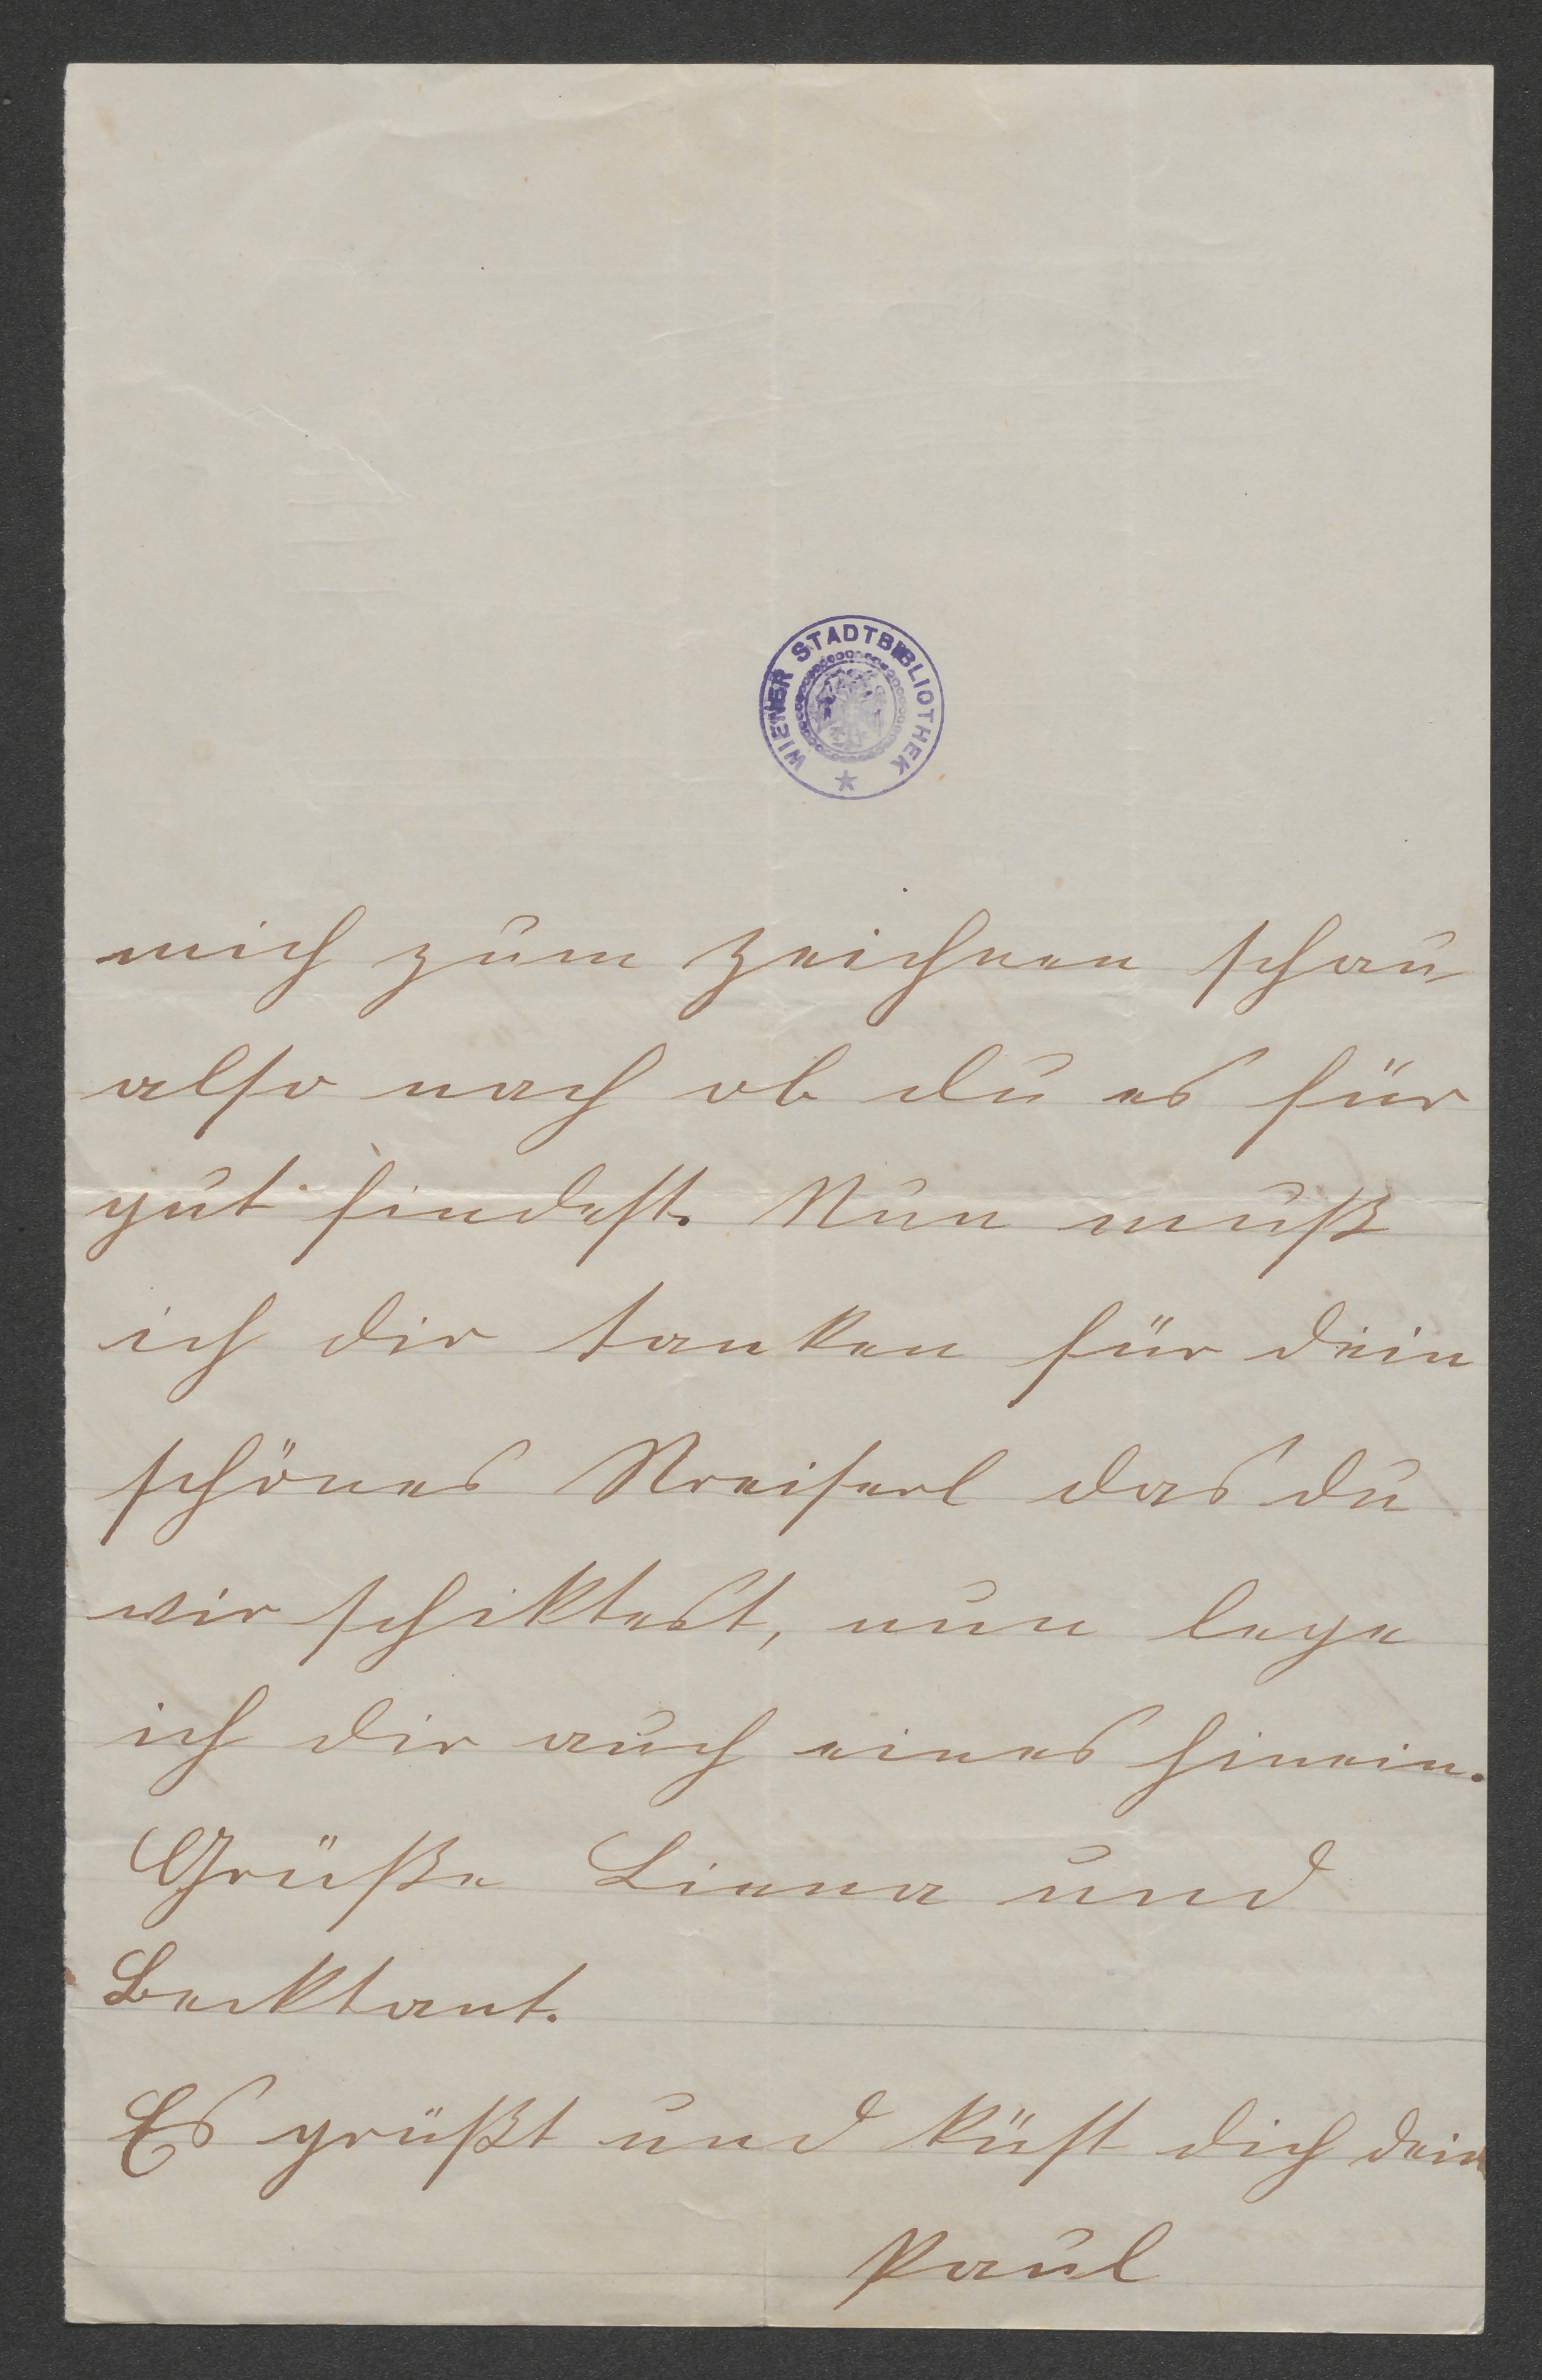 WIENER STADTBIBLIOTHEK
mich zum zeichnen schau
also nach ob du es für
gut findest. Nun muß
ich dir tanken für dein
schönes Kreiserl das du
mir schiktest, nun lege
ich dir auch eines hinein.
Grüße Linna und
Becktant.
Es grüßt und küst dich dein
Paul